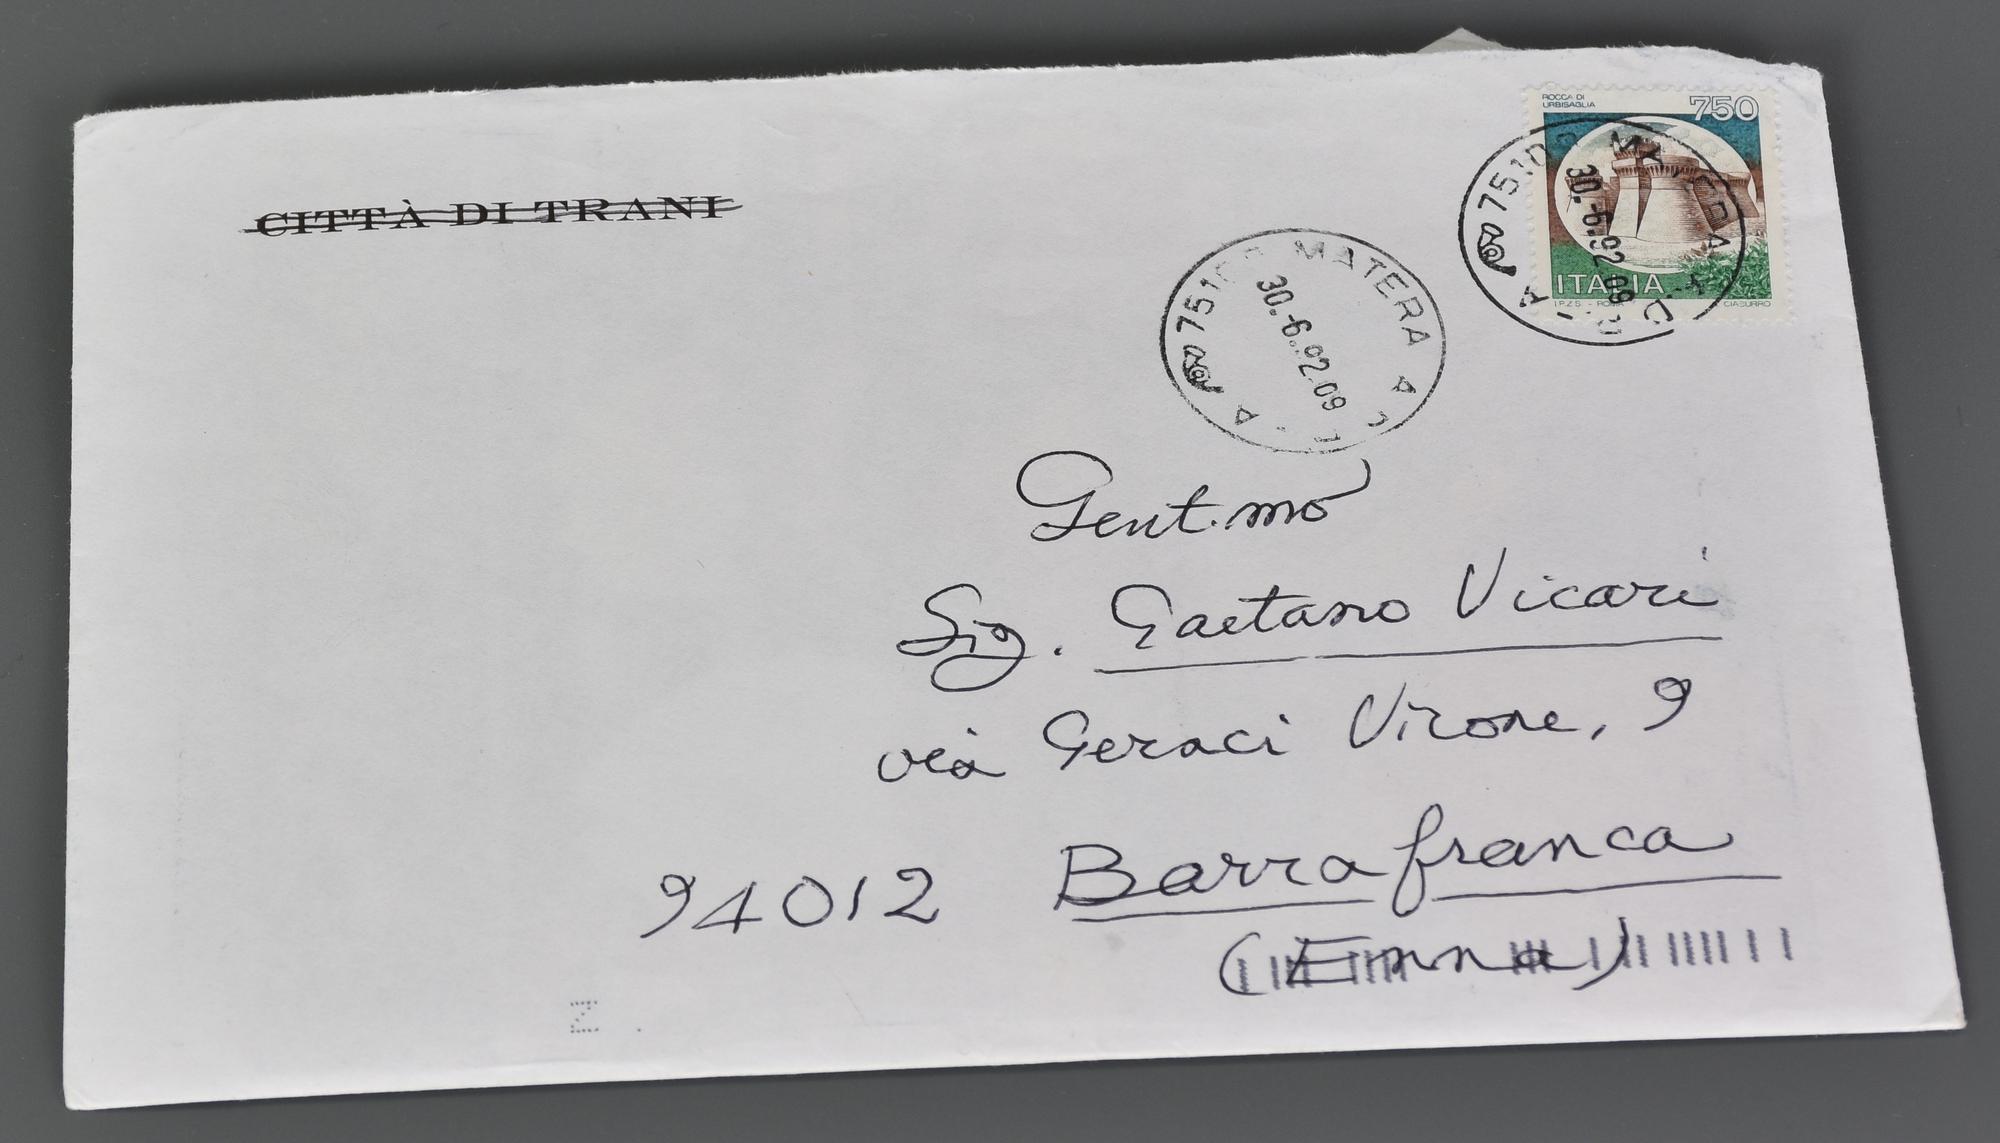 CITTÀ DI TRANI
ROCCA DI
URBISAGLIA
750
ITALIA
I.P.Z.S. - ROMA
CIABURRO
75100 MATERA
30.-6.92.09
75100 MATERA A
30.-6.92.09
Gent.mo
Sig. Gaetano Vicari
via Geraci Virone, 9
94012 Barrafranca
(Enna)
Z